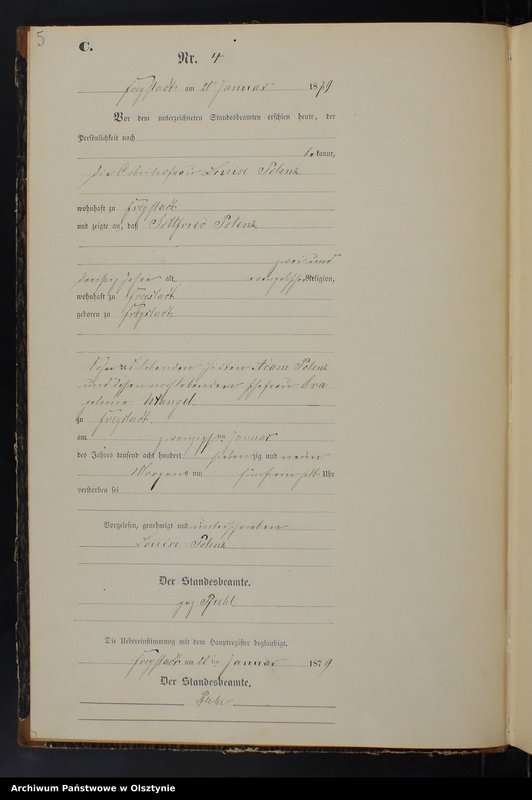 5
C.
Nr. 4
Freystadt am 20 Januar 1879
Vor dem unterzeichneten Standesbeamten erschien heute, der
Persönlichkeit nach
bekannt,
die Arbeiterfrau Louise Polenz
wohnhaft zu Freystadt
und zeigte an, daß Gottfried Polenz
zwei und
dreißig Jahre alt, evangelischer Religion,
wohnhaft zu Freistadt
geboren zu Freystadt
Sohn des lebenden Adam Polenz
und dessen noch lebenden Ehefrau Eva
geborne Wangel
zu Freystadt
am zwanzigsten Januar
des Jahres tausend acht hundert siebenzig und neun
Morgens um fünf ein halb Uhr
verstorben sei
Vorgelesen, genehmigt und unterschrieben
Louise Polenz
Der Standesbeamte.
gez
Die Uebereinstimmung mit dem Hauptregister beglaubigt.
Freystadt am 20 ten Januar 1879
Der Standesbeamte.
Archiwum Państwowe w Olsztynie